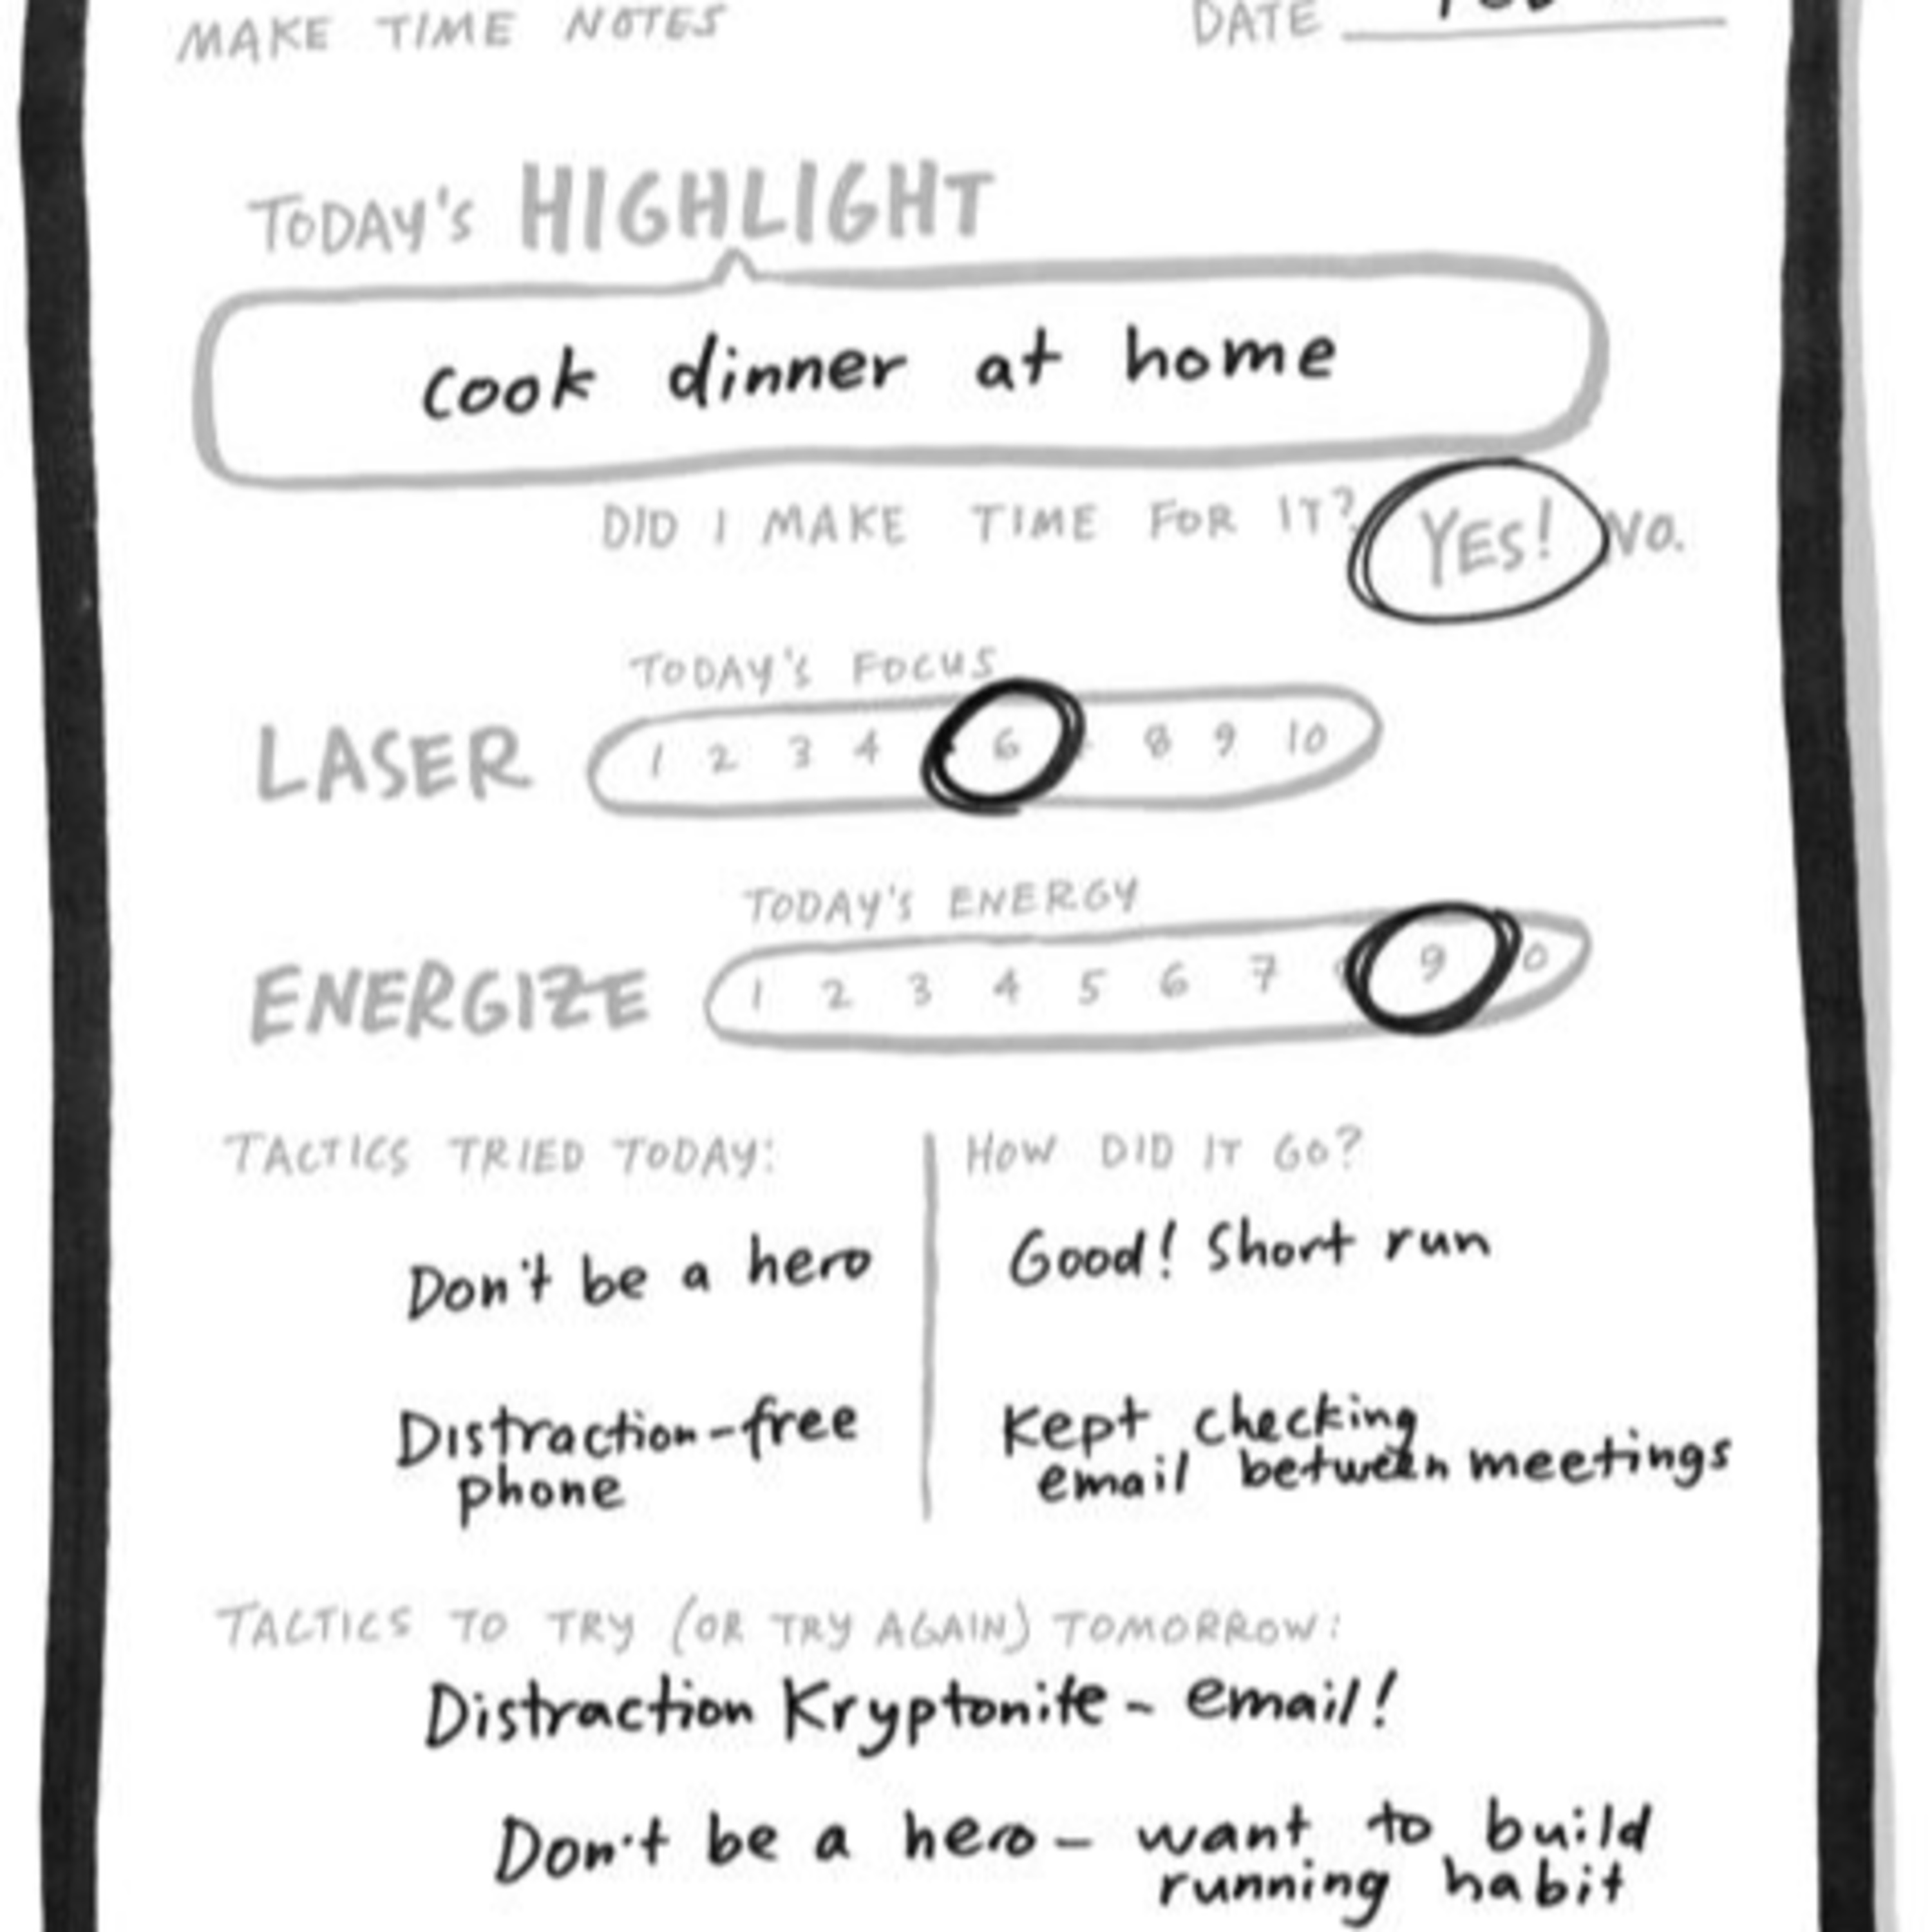 MAKE TIME NOTES DATE
TODAY'S HIGHLIGHT
cook dinner at home
DID I MAKE TIME FOR IT? YES! NO.
TODAY'S FOCUS
LASER 1 2 3 4 6 8 9 10
TODAY'S ENERGY
ENERGIZE 1 2 3 4 5 6 7 9 0
TACTICS TRIED TODAY: HOW DID IT GO?
Don't be a hero Good! Short run
Distraction-free Kept checking
phone email between meetings
TACTICS TO TRY (OR TRY AGAIN) TOMORROW:
Distraction Kryptonite - email!
Don't be a hero - want to build
running habit